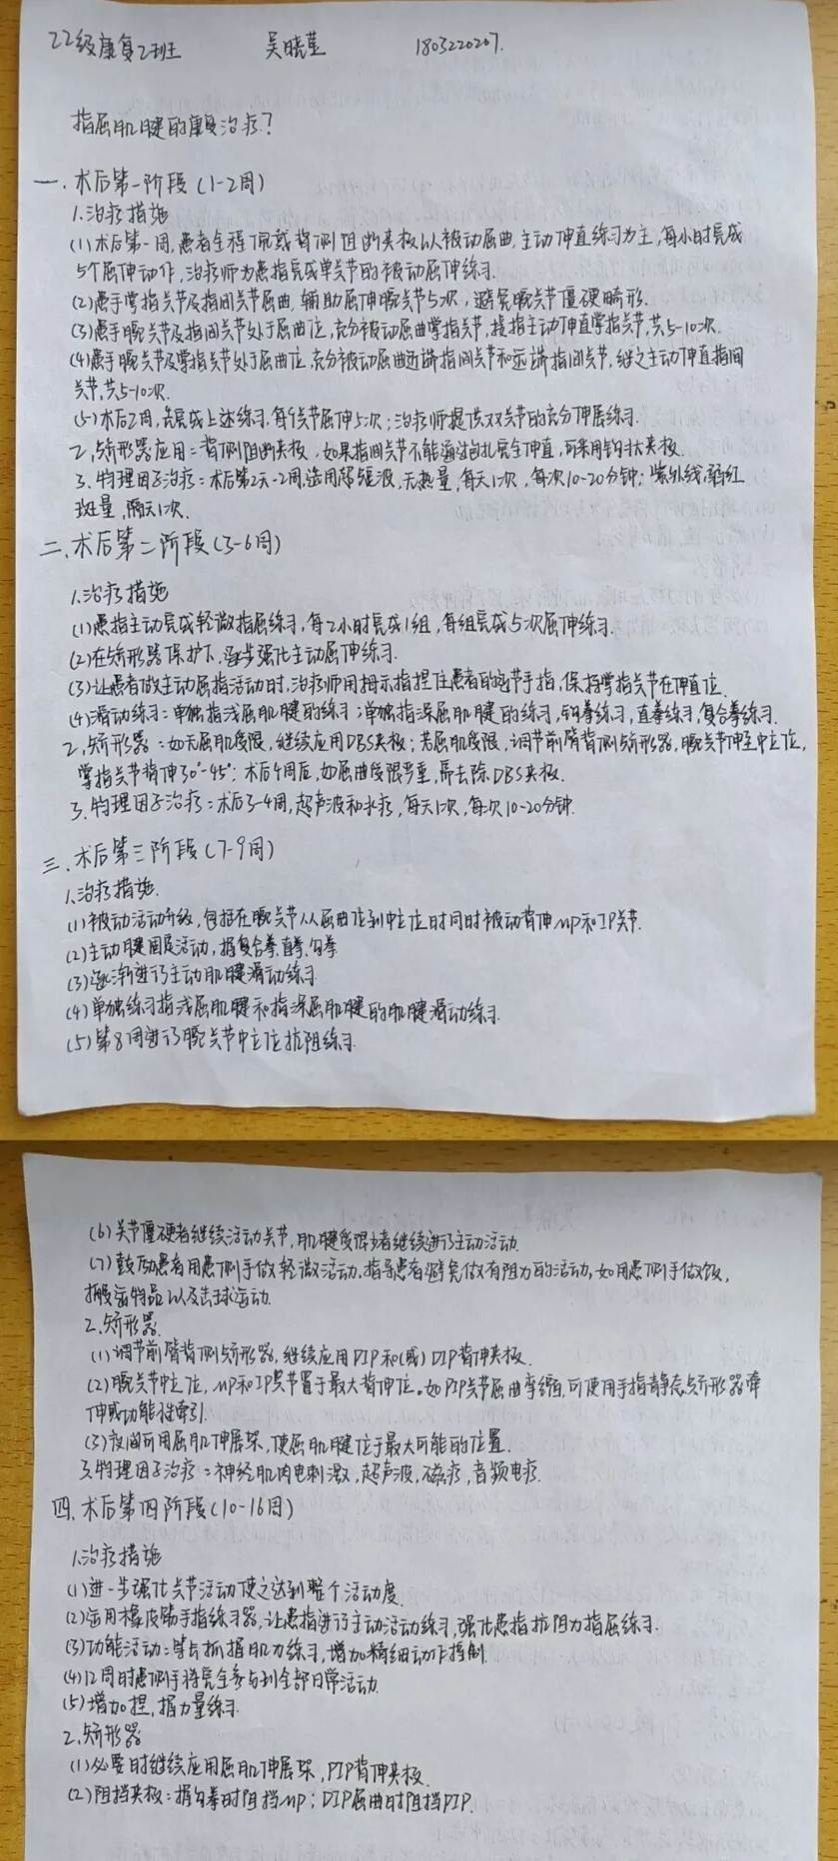 22级康复2班 吴晓莹 1803220207.
指屈肌腱的康复治疗?
一、术后第一阶段(1-2周)
1.治疗措施
(1)术后第一周,患者全程佩戴背侧阻断夹板以被动屈曲,主动伸直练习为主,每小时完成
5个屈伸动作,治疗师为患指完成单关节的被动屈伸练习.
(2)患手掌指关节及指间关节屈曲,辅助屈伸腕关节5次,避免腕关节僵硬畸形.
(3)患手腕关节及指间关节处于屈曲位,充分被动屈曲掌指关节,患指主动伸直掌指关节,共5-10次.
(4)患手腕关节及掌指关节处于屈曲位,充分被动屈曲近端指间关节和远端指间关节,继之主动伸直指间
关节,共5-10次.
(5)术后2周,先完成上述练习,每个关节屈伸5次;治疗师提供双关节的充分伸展练习.
2.矫形器应用:背侧阻断夹板.如果指间关节不能通过包扎完全伸直,可采用钩状夹板.
3.物理因子治疗:术后第2天-2周,选用超短波,无热量,每天1次,每次10-20分钟;紫外线,弱红
斑量,隔天1次.
二、术后第二阶段(3-6周)
1.治疗措施
(1)患指主动完成轻微指屈练习,每2小时完成1组,每组完成5次屈伸练习.
(2)在矫形器保护下,逐步强化主动屈伸练习.
(3)让患者做主动屈指活动时,治疗师用拇示指捏住患者的近节手指,保持掌指关节在伸直位.
(4)滑动练习:单独指浅屈肌腱的练习;单独指深屈肌腱的练习,钩拳练习,直拳练习,复合拳练习.
2.矫形器:如无屈肌受限,继续应用DBS夹板;若屈肌受限,调节前臂背侧矫形器,腕关节伸至中立位,
掌指关节背伸30°-45°;术后4周后,如屈曲受限严重,需去除DBS夹板.
3.物理因子治疗:术后3-4周,超声波和水疗,每天1次,每次10-20分钟.
三、术后第三阶段(7-9周)
1.治疗措施.
(1)被动活动升级,包括在腕关节从屈曲位到中立位时同时被动背伸MP和IP关节.
(2)主动腱固定活动,握复合拳、直拳、勾拳
(3)逐渐进行主动肌腱滑动练习
(4)单独练习指浅屈肌腱和指深屈肌腱的肌腱滑动练习.
(5)第8周进行腕关节中立位抗阻练习.
(6)关节僵硬者继续活动关节,肌腱受限者继续进行主动活动.
(7)鼓励患者用患侧手做轻微活动.指导患者避免做有阻力的活动,如用患侧手做饭,
搬运物品以及击球运动.
2.矫形器.
(1)调节前臂背侧矫形器,继续应用PIP和(或)DIP背伸夹板.
(2)腕关节中立位,MP和IP关节置于最大背伸位.如PIP关节屈曲挛缩,可使用手指静态矫形器牵
伸或功能性牵引.
(3)夜间可用屈肌伸展架,使屈肌腱位于最大可能的位置.
3.物理因子治疗:神经肌肉电刺激,超声波,磁疗,音频电疗.
四、术后第四阶段(10-16周)
1.治疗措施
(1)进一步强化关节活动使之达到整个活动度.
(2)运用橡皮筋手指练习器,让患指进行主动活动练习,强化患指抗阻力指屈练习.
(3)功能活动:等长抓握肌力练习,增加精细动作控制
(4)12周时患侧手将完全参与到全部日常活动.
(5)增加捏,握力量练习.
2.矫形器
(1)必要时继续应用屈肌伸展架,PIP背伸夹板.
(2)阻挡夹板:握勾拳时阻挡MP;DIP屈曲时阻挡PIP.